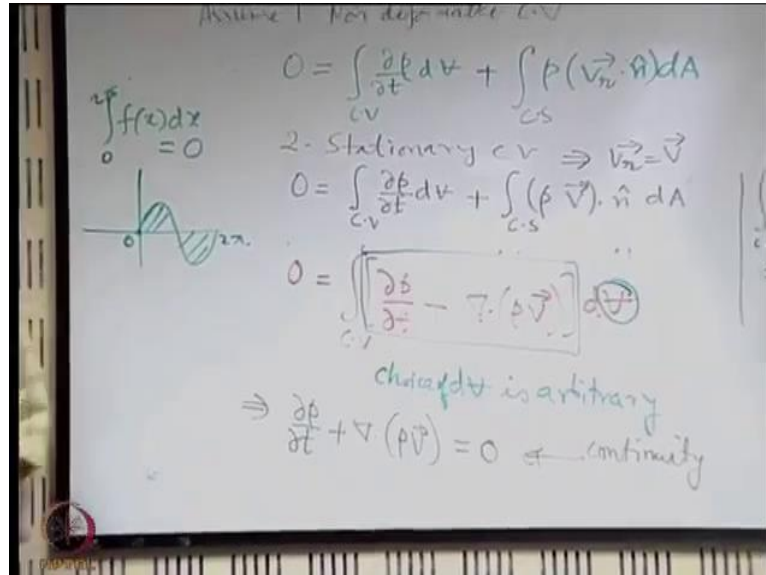 Assume 1 Non deformable C.V
0 = ∫_{C.V} ∂ρ/∂t dV + ∫_{C.S} ρ(V⃗r · n̂)dA
∫₀^{2π} f(x)dx = 0
2. Stationary CV ⇒ V⃗r = V⃗
0 = ∫_{C.V} ∂ρ/∂t dV + ∫_{C.S} (ρ V⃗) · n̂ dA
0 2π
0 = ∫_{C.V} [∂ρ/∂t - ∇·(ρV⃗)] dV
choice of dV is arbitrary
⇒ ∂ρ/∂t + ∇(ρV⃗) = 0 ← continuity
NPTEL